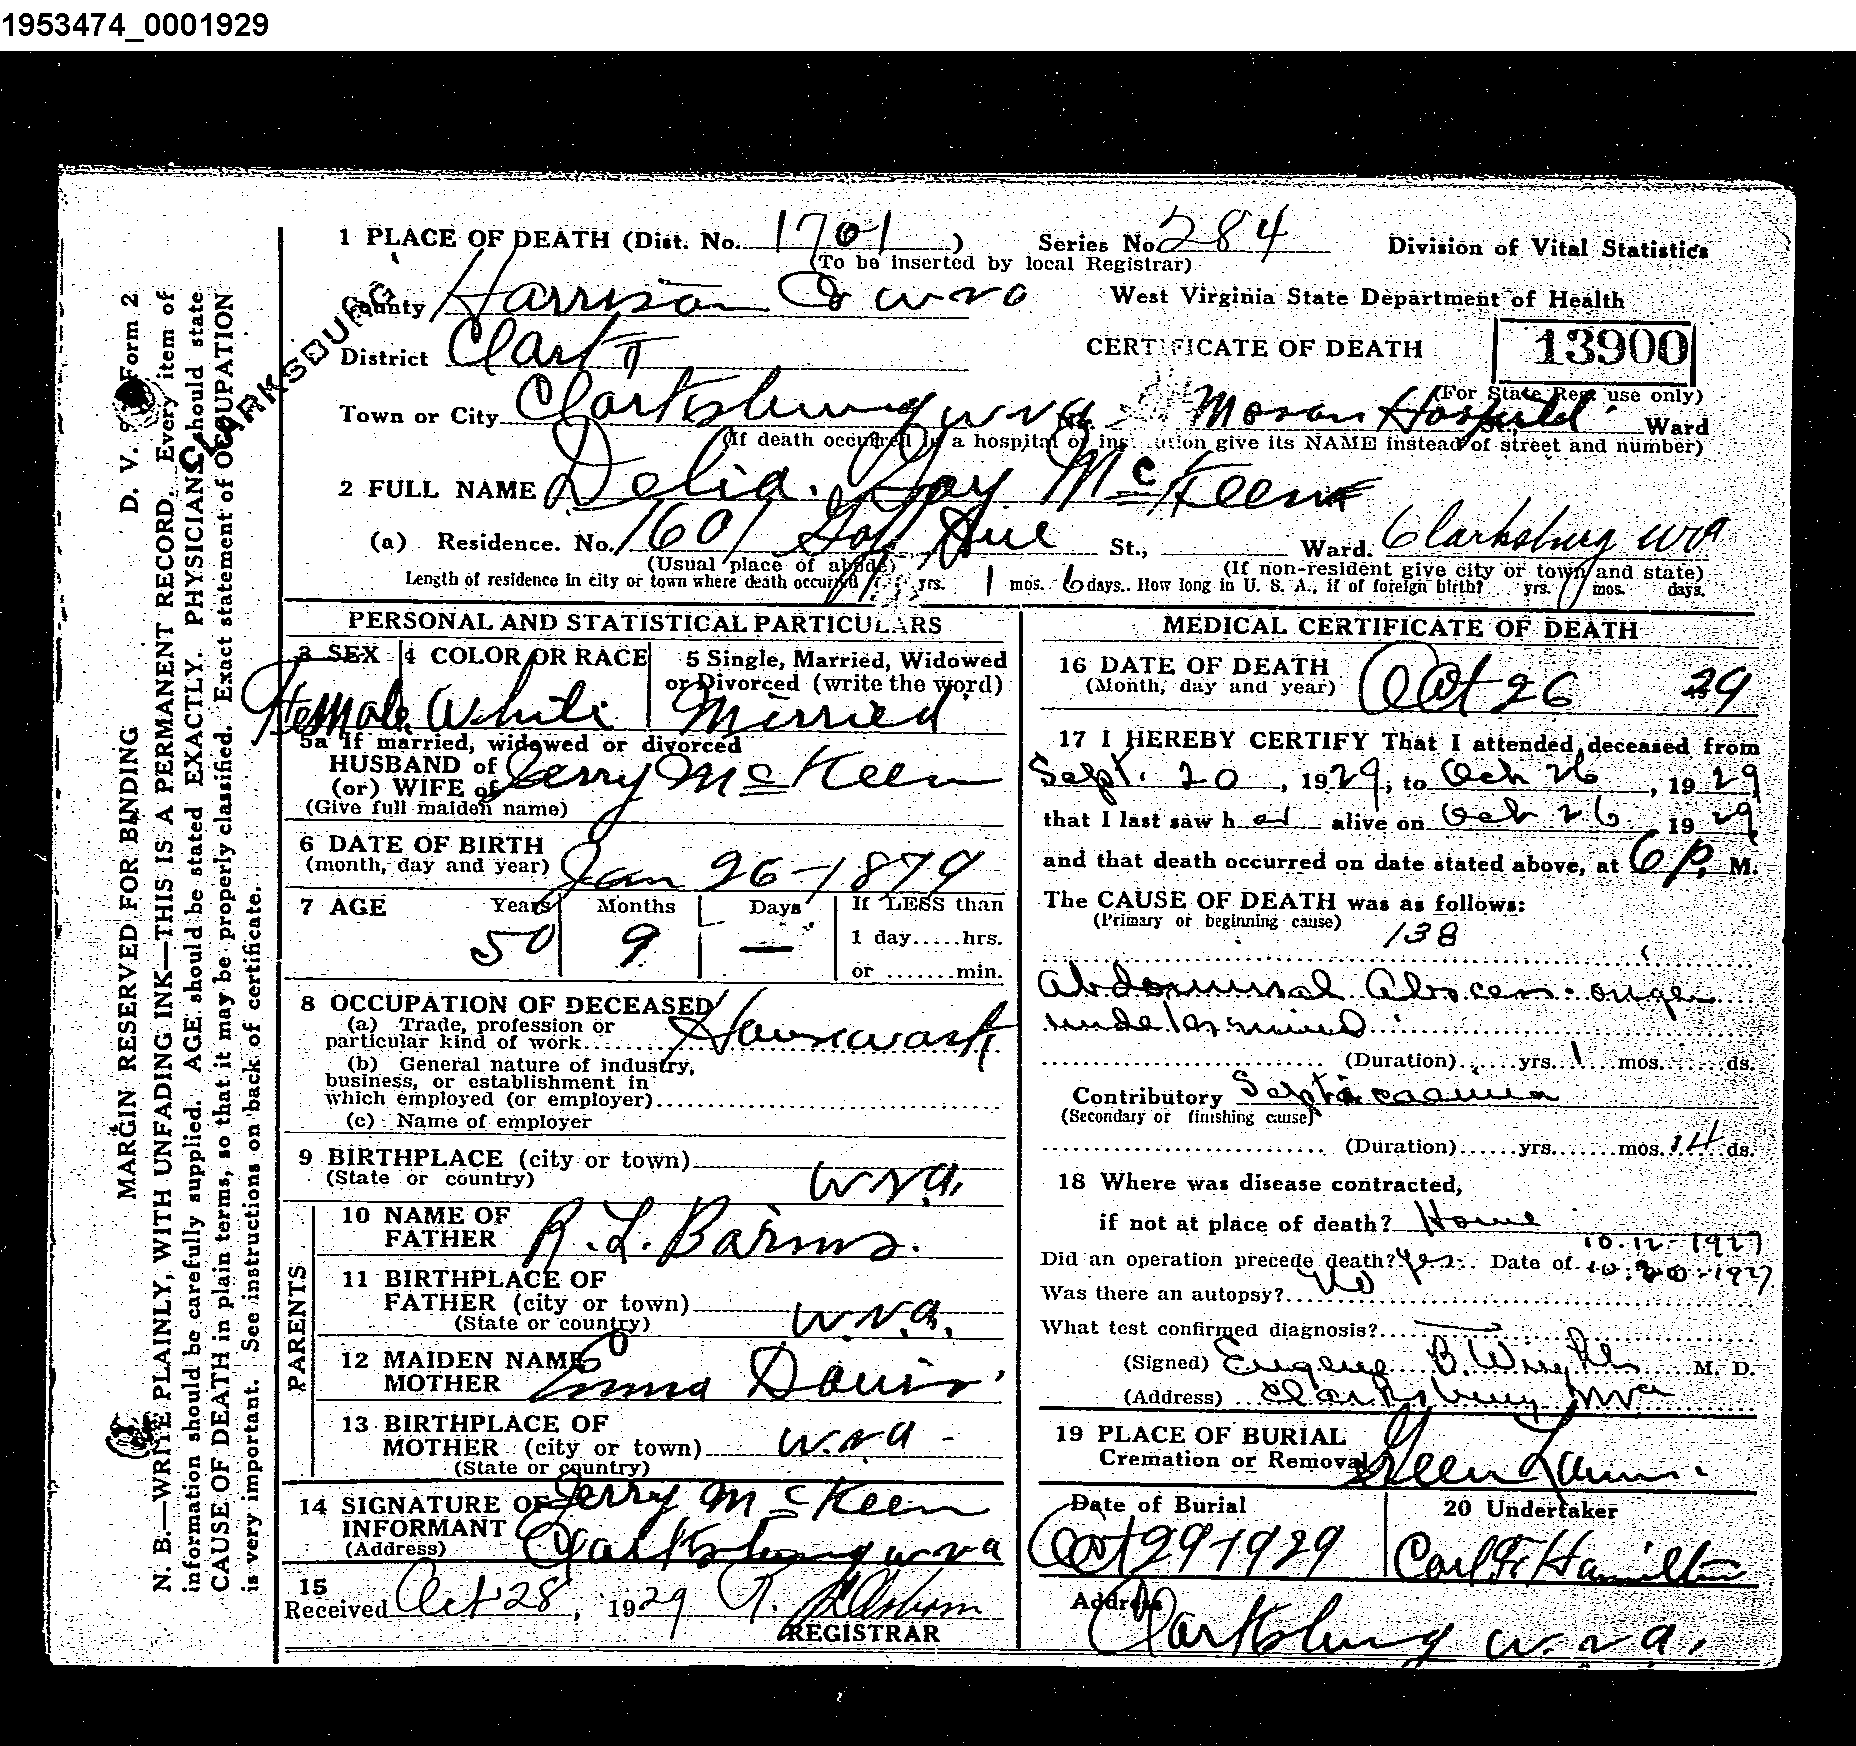 1953474_0001929
1 PLACE OF DEATH (Dist. No. 1701 ) Series No. 284 Division of Vital Statistics
(To be inserted by local Registrar)
County Harrison Co W Va West Virginia State Department of Health
CLARKSBURG
District Clark CERTIFICATE OF DEATH 13900
(For State Reg. use only)
Town or City Clarksburg W Va No. Moran Hospital Ward
(If death occurred in a hospital or institution give its NAME instead of street and number)
2 FULL NAME Delia. Gay McKeen
(a) Residence. No. 1601 Goff Ave St., Ward. Clarksburg W Va
(Usual place of abode) (If non-resident give city or town and state)
Length of residence in city or town where death occurred yrs. 1 mos. 6 days. How long in U. S. A., if of foreign birth? yrs. mos. days.
PERSONAL AND STATISTICAL PARTICULARS
3 SEX 4 COLOR OR RACE 5 Single, Married, Widowed
or Divorced (write the word)
Female White Mirried
5a If married, widowed or divorced
HUSBAND of
(or) WIFE of Jerry McKeen
(Give full maiden name)
6 DATE OF BIRTH
(month, day and year) Jan 26-1879
7 AGE Years Months Days If LESS than
50 9 — 1 day.....hrs.
or .......min.
8 OCCUPATION OF DECEASED
(a) Trade, profession or
particular kind of work Housework
(b) General nature of industry,
business, or establishment in
which employed (or employer)
(c) Name of employer
9 BIRTHPLACE (city or town)
(State or country) W.Va.
PARENTS
10 NAME OF
FATHER R. L. Barnes.
11 BIRTHPLACE OF
FATHER (city or town)
(State or country) W.Va.
12 MAIDEN NAME
MOTHER Emma Davis
13 BIRTHPLACE OF
MOTHER (city or town) W.Va -
(State or country)
14 SIGNATURE OF
INFORMANT Jerry McKeen
(Address) Clarksburg W Va
15
Received Oct 28, 1929 Osborn
REGISTRAR
MEDICAL CERTIFICATE OF DEATH
16 DATE OF DEATH
(Month, day and year) Oct 26 29
17 I HEREBY CERTIFY That I attended deceased from
Sept. 20, 1929, to Oct 26, 1929
that I last saw h er alive on Oct 26 1929
and that death occurred on date stated above, at 6 P. M.
The CAUSE OF DEATH was as follows:
(Primary or beginning cause) 138
Abdominal Abscess - origin
undetermined
(Duration) yrs. 1 mos. ds.
Contributory Septicaemia
(Secondary or finishing cause)
(Duration) yrs. mos. 14 ds.
18 Where was disease contracted,
if not at place of death? Home
10-12-1927
Did an operation precede death? Yes Date of 10-20-1927
Was there an autopsy? No
What test confirmed diagnosis?
(Signed) Eugene B. Wright M. D.
(Address) Clarksburg W Va
19 PLACE OF BURIAL
Cremation or Removal Green Lawn.
Date of Burial 20 Undertaker
Oct 29-1929 Carl F. Hamilton
Address
Clarksburg W. Va.
MARGIN RESERVED FOR BINDING D. V. S. Form 2
N. B.—WRITE PLAINLY, WITH UNFADING INK—THIS IS A PERMANENT RECORD. Every item of
information should be carefully supplied. AGE should be stated EXACTLY. PHYSICIANS should state
CAUSE OF DEATH in plain terms, so that it may be properly classified. Exact statement of OCCUPATION
is very important. See instructions on back of certificate.